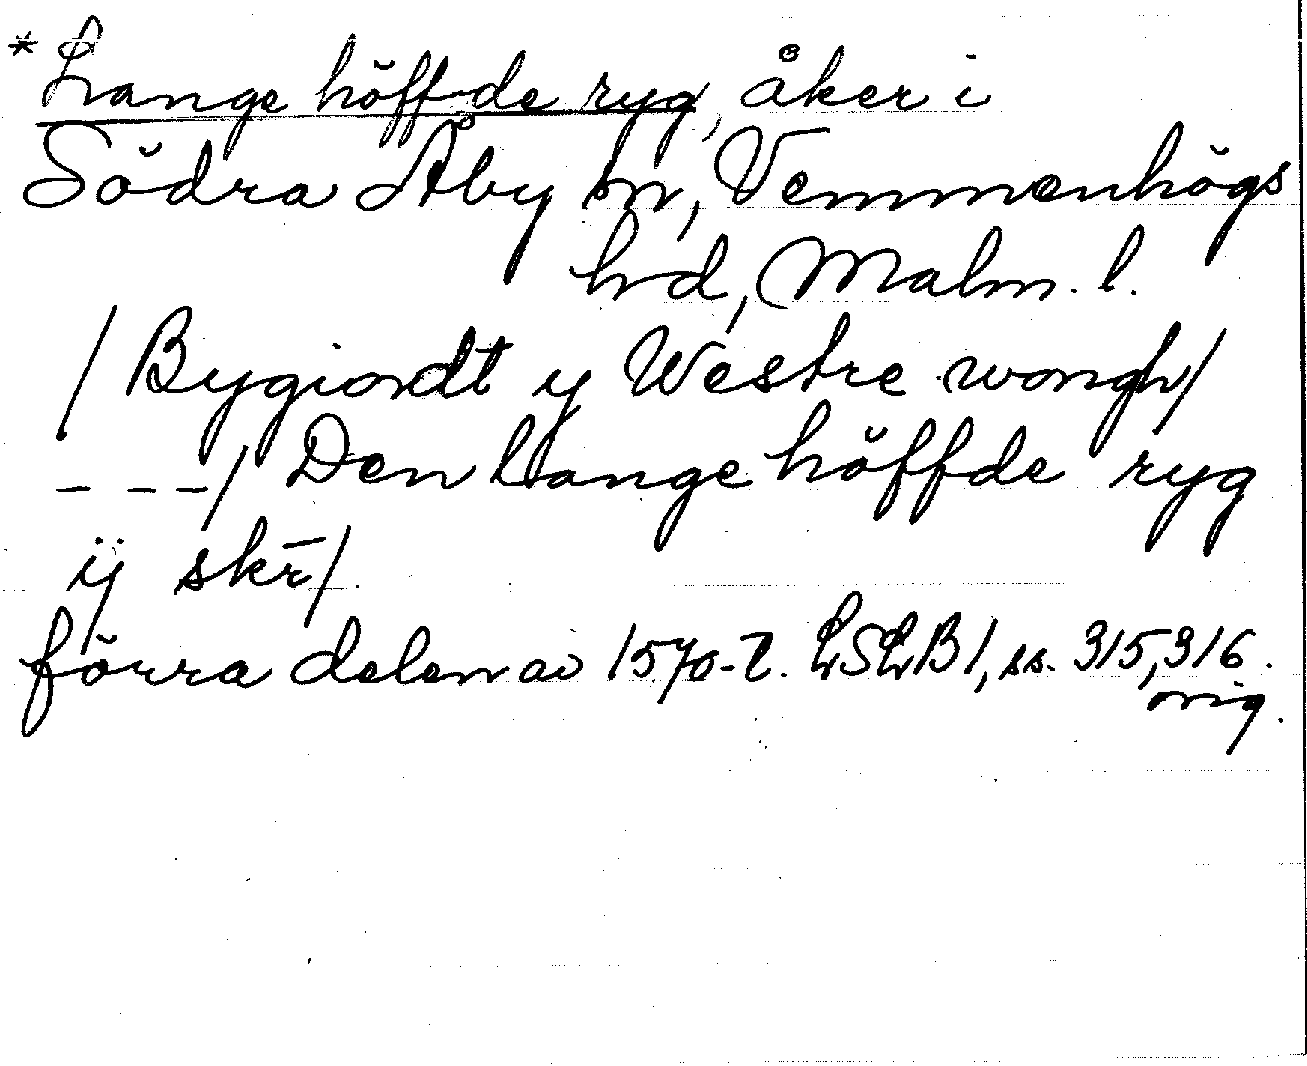 *Lange höffde ryg, åker i
Södra Åby sn, Vemmenhögs
hd, Malm. l.
/ Bygiordt y Westre wongh/
- - -/ Den lange höffde ryg
ÿ skr̄/
förra delen av 1570-t. LSLB1, ss. 315, 316.
orig.